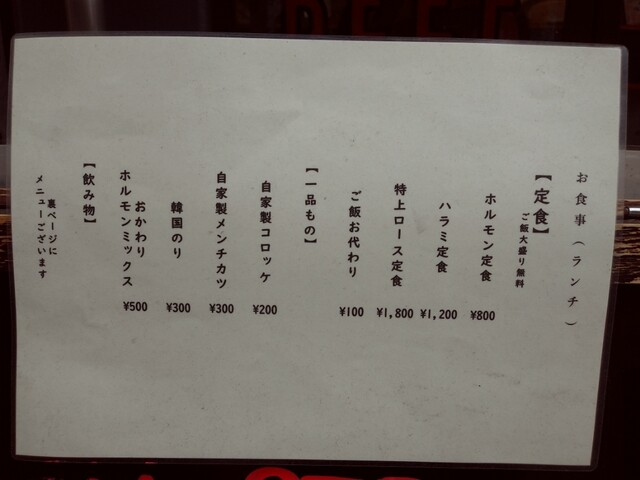 お食事（ランチ）
【定食】
ご飯大盛り無料
ホルモン定食 ¥800
ハラミ定食 ¥1,200
特上ロース定食 ¥1,800
ご飯お代わり ¥100
【一品もの】
自家製コロッケ ¥200
自家製メンチカツ ¥300
韓国のり ¥300
おかわり
ホルモンミックス ¥500
【飲み物】
裏ページに
メニューございます